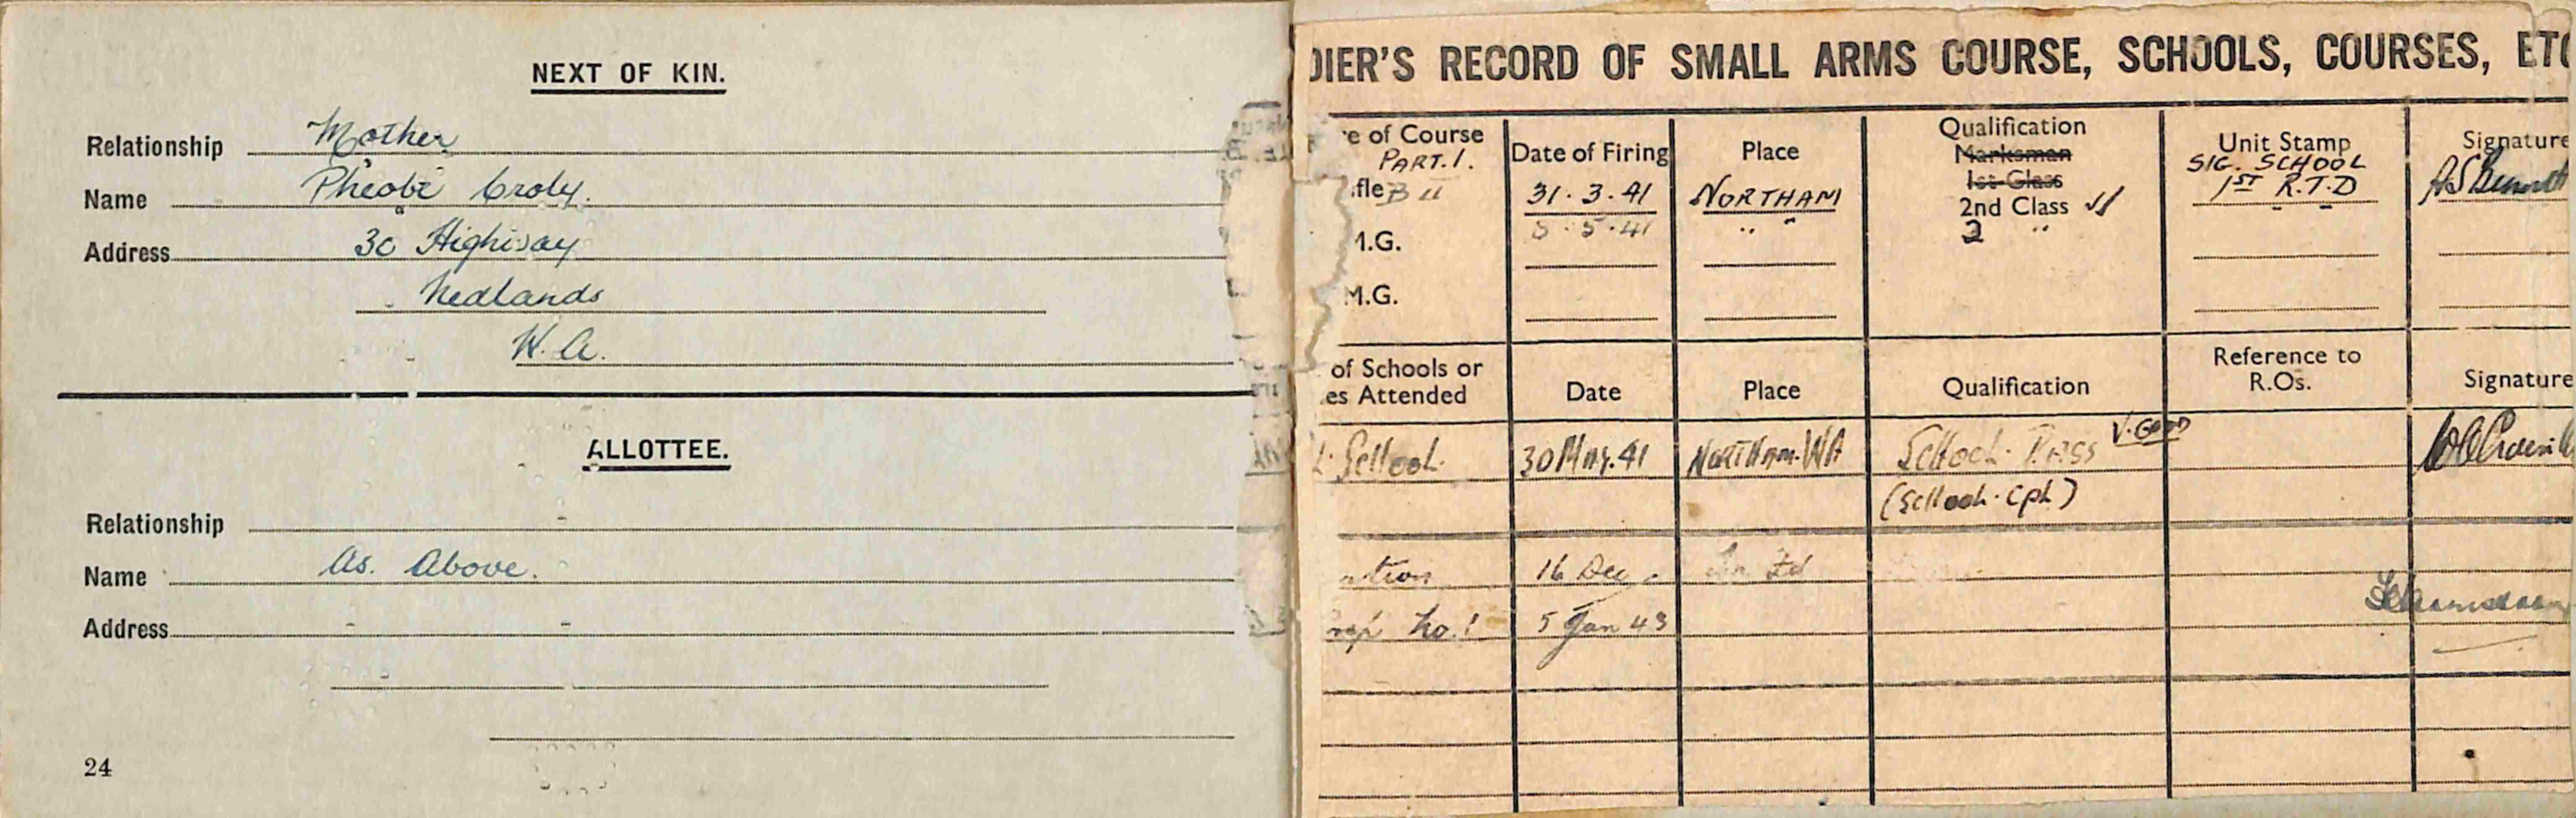 NEXT OF KIN.
Relationship Mother
Name Pheobe Croly.
Address 30 Highway
Nedlands
W.A.
ALLOTTEE.
Relationship
Name As. Above.
Address
24
DIER'S RECORD OF SMALL ARMS COURSE, SCHOOLS, COURSES, ETC
e of Course Date of Firing Place Qualification Unit Stamp Signature
PART.1. Marksman SIG. SCHOOL
fle B II 31.3.41 NORTHAM 1st Class 1ST R.T.D
2nd Class
M.G. 5.5.41 " " 2 "
M.G.
of Schools or es Attended Date Place Qualification Reference to R.Os. Signature
School 30 May. 41 Northam. WA School. Pass V.GOOD
(School. Cpl)
ation 16 Dec
No. 1 5 Jan 43